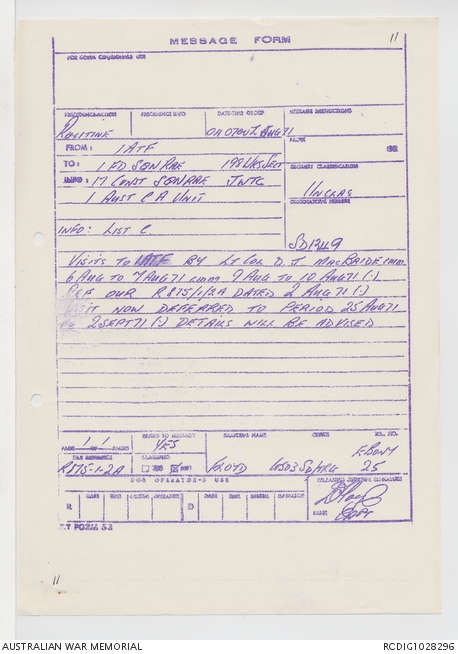 MESSAGE FORM
11
FOR COMM CEN/SIGNALS USE
PRECEDENCE-ACTION PRECEDENCE-INFO DATE-TIME GROUP MESSAGE INSTRUCTIONS
ROUTINE AUG 71
FROM: 1ATF
PREFIX GR
TO: 1 FD SQN RAE 198 WKS SECT
SECURITY CLASSIFICATION
17 CONST SQN RAE JWTC
UNCLAS
1 AUST C A UNIT
ORIGINATORS NUMBER
INFO: LIST C
SD1349
VISITS TO 1ATF BY LT COL D.J. MACBRIDE
6 AUG TO 7 AUG 71 9 AUG TO 10 AUG 71 (.)
REF OUR R875/1/2A DATED 2 AUG 71 (.)
VISIT NOW DEFERRED TO PERIOD 25 AUG 71
TO 2 SEPT 71 (.) DETAILS WILL BE ADVISED
PAGE 1 OF 1 PAGES REFERS TO MESSAGE DRAFTERS NAME OFFICE TEL. NO.
YES
EBONY
FILE REFERENCE CLASSIFIED
R875-1-2A YES NO 25
FOR OPERATOR'S USE
RELEASING OFFICERS SIGNATURE
R DATE TIME SYSTEM OPERATOR D DATE TIME SYSTEM OPERATOR
RANK CAPT
11
AUSTRALIAN WAR MEMORIAL
RCDIG1028296